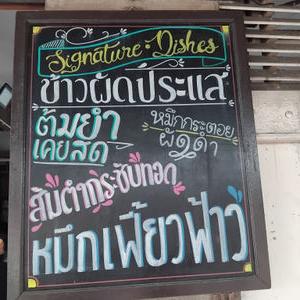 Signature Dishes
ข้าวผัดประแส
ต้มยำ
เคยสด
หมึกกระตอย
ผัดดำ
ส้มตำกระชับทอด
หมึกเฟี้ยวฟ้าว